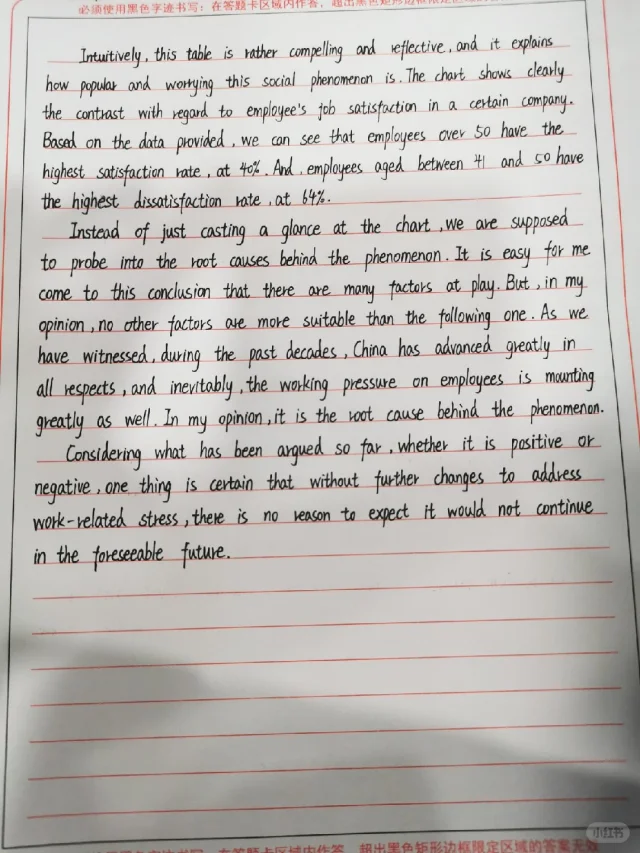 必须使用黑色字迹书写：在答题卡区域内作答，超出黑色矩形边框限定区域的答
Intuitively, this table is rather compelling and reflective, and it explains
how popular and worrying this social phenomenon is. The chart shows clearly
the contrast with regard to employee's job satisfaction in a certain company.
Based on the data provided, we can see that employees over 50 have the
highest satisfaction rate, at 40%. And, employees aged between 41 and 50 have
the highest dissatisfaction rate, at 64%.
Instead of just casting a glance at the chart, we are supposed
to probe into the root causes behind the phenomenon. It is easy for me
come to this conclusion that there are many factors at play. But, in my
opinion, no other factors are more suitable than the following one. As we
have witnessed, during the past decades, China has advanced greatly in
all respects, and inevitably, the working pressure on employees is mounting
greatly as well. In my opinion, it is the root cause behind the phenomenon.
Considering what has been argued so far, whether it is positive or
negative, one thing is certain that without further changes to address
work-related stress, there is no reason to expect it would not continue
in the foreseeable future.
小红书
在答题卡区域内作答，超出黑色矩形边框限定区域的答案无效